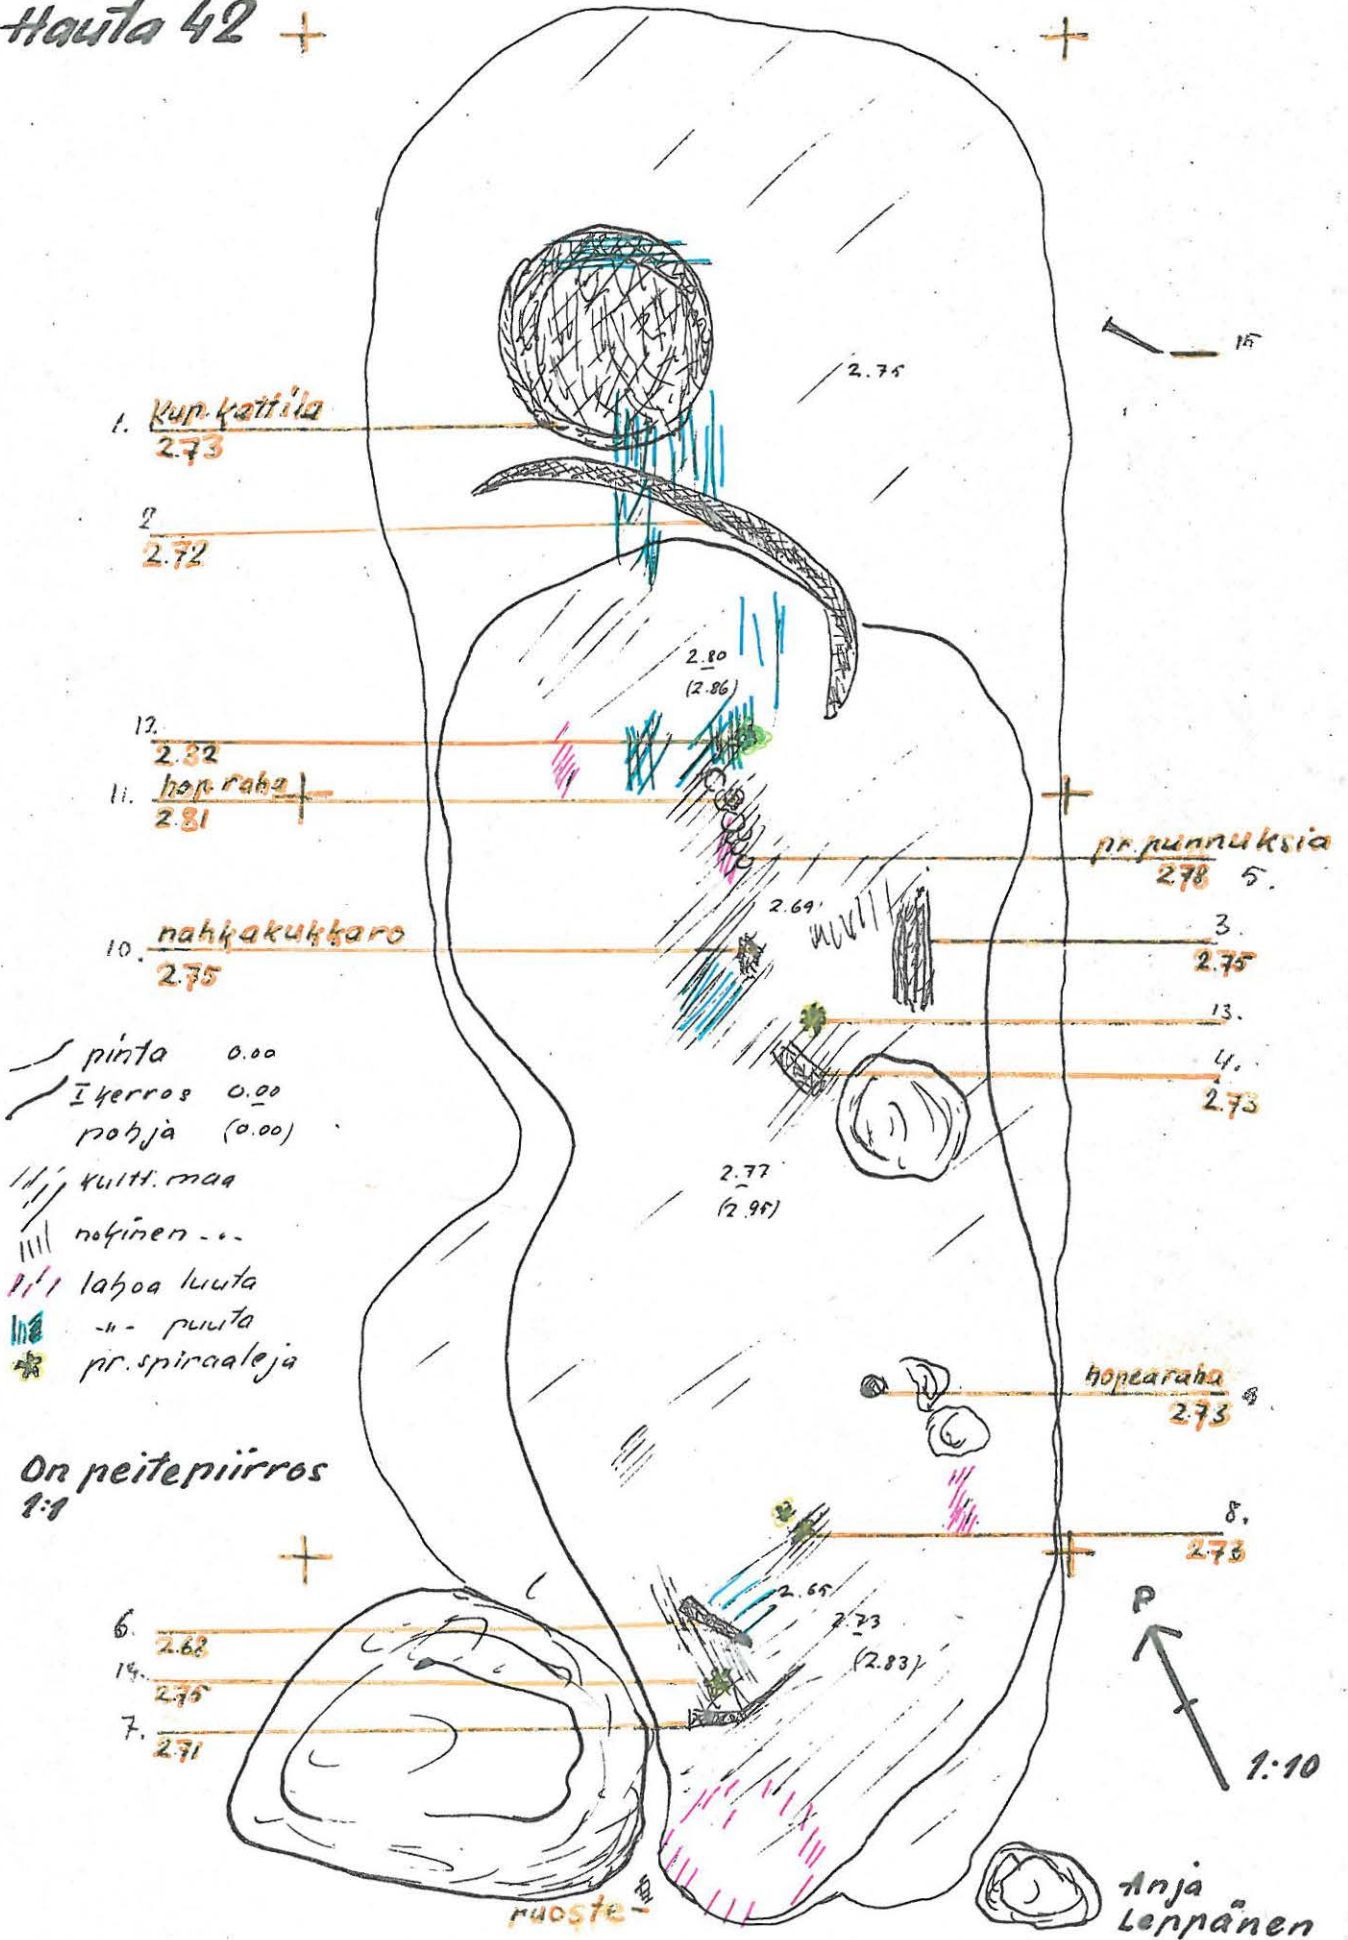 Hauta 42
15
2.75
1. kup.kattila
2.73
2
2.72
2.80
(2.86)
12.
2.82
11. hop.raha
2.81
pr.punnuksia
2.78 5.
2.69
3.
2.75
10. nahkakukkaro
2.75
13.
4.
2.73
pinta 0.00
I kerros 0.00
pohja (0.00)
kultt.maa
nokinen -"-
lahoa luuta
-"- puuta
pr.spiraaleja
2.77
(2.95)
hopearaha
2.73
On peitepiirros
1:1
8.
2.73
2.65
2.73
(2.83)
6.
2.68
14.
2.75
7.
2.71
P
1:10
ruoste
Anja
Leppänen